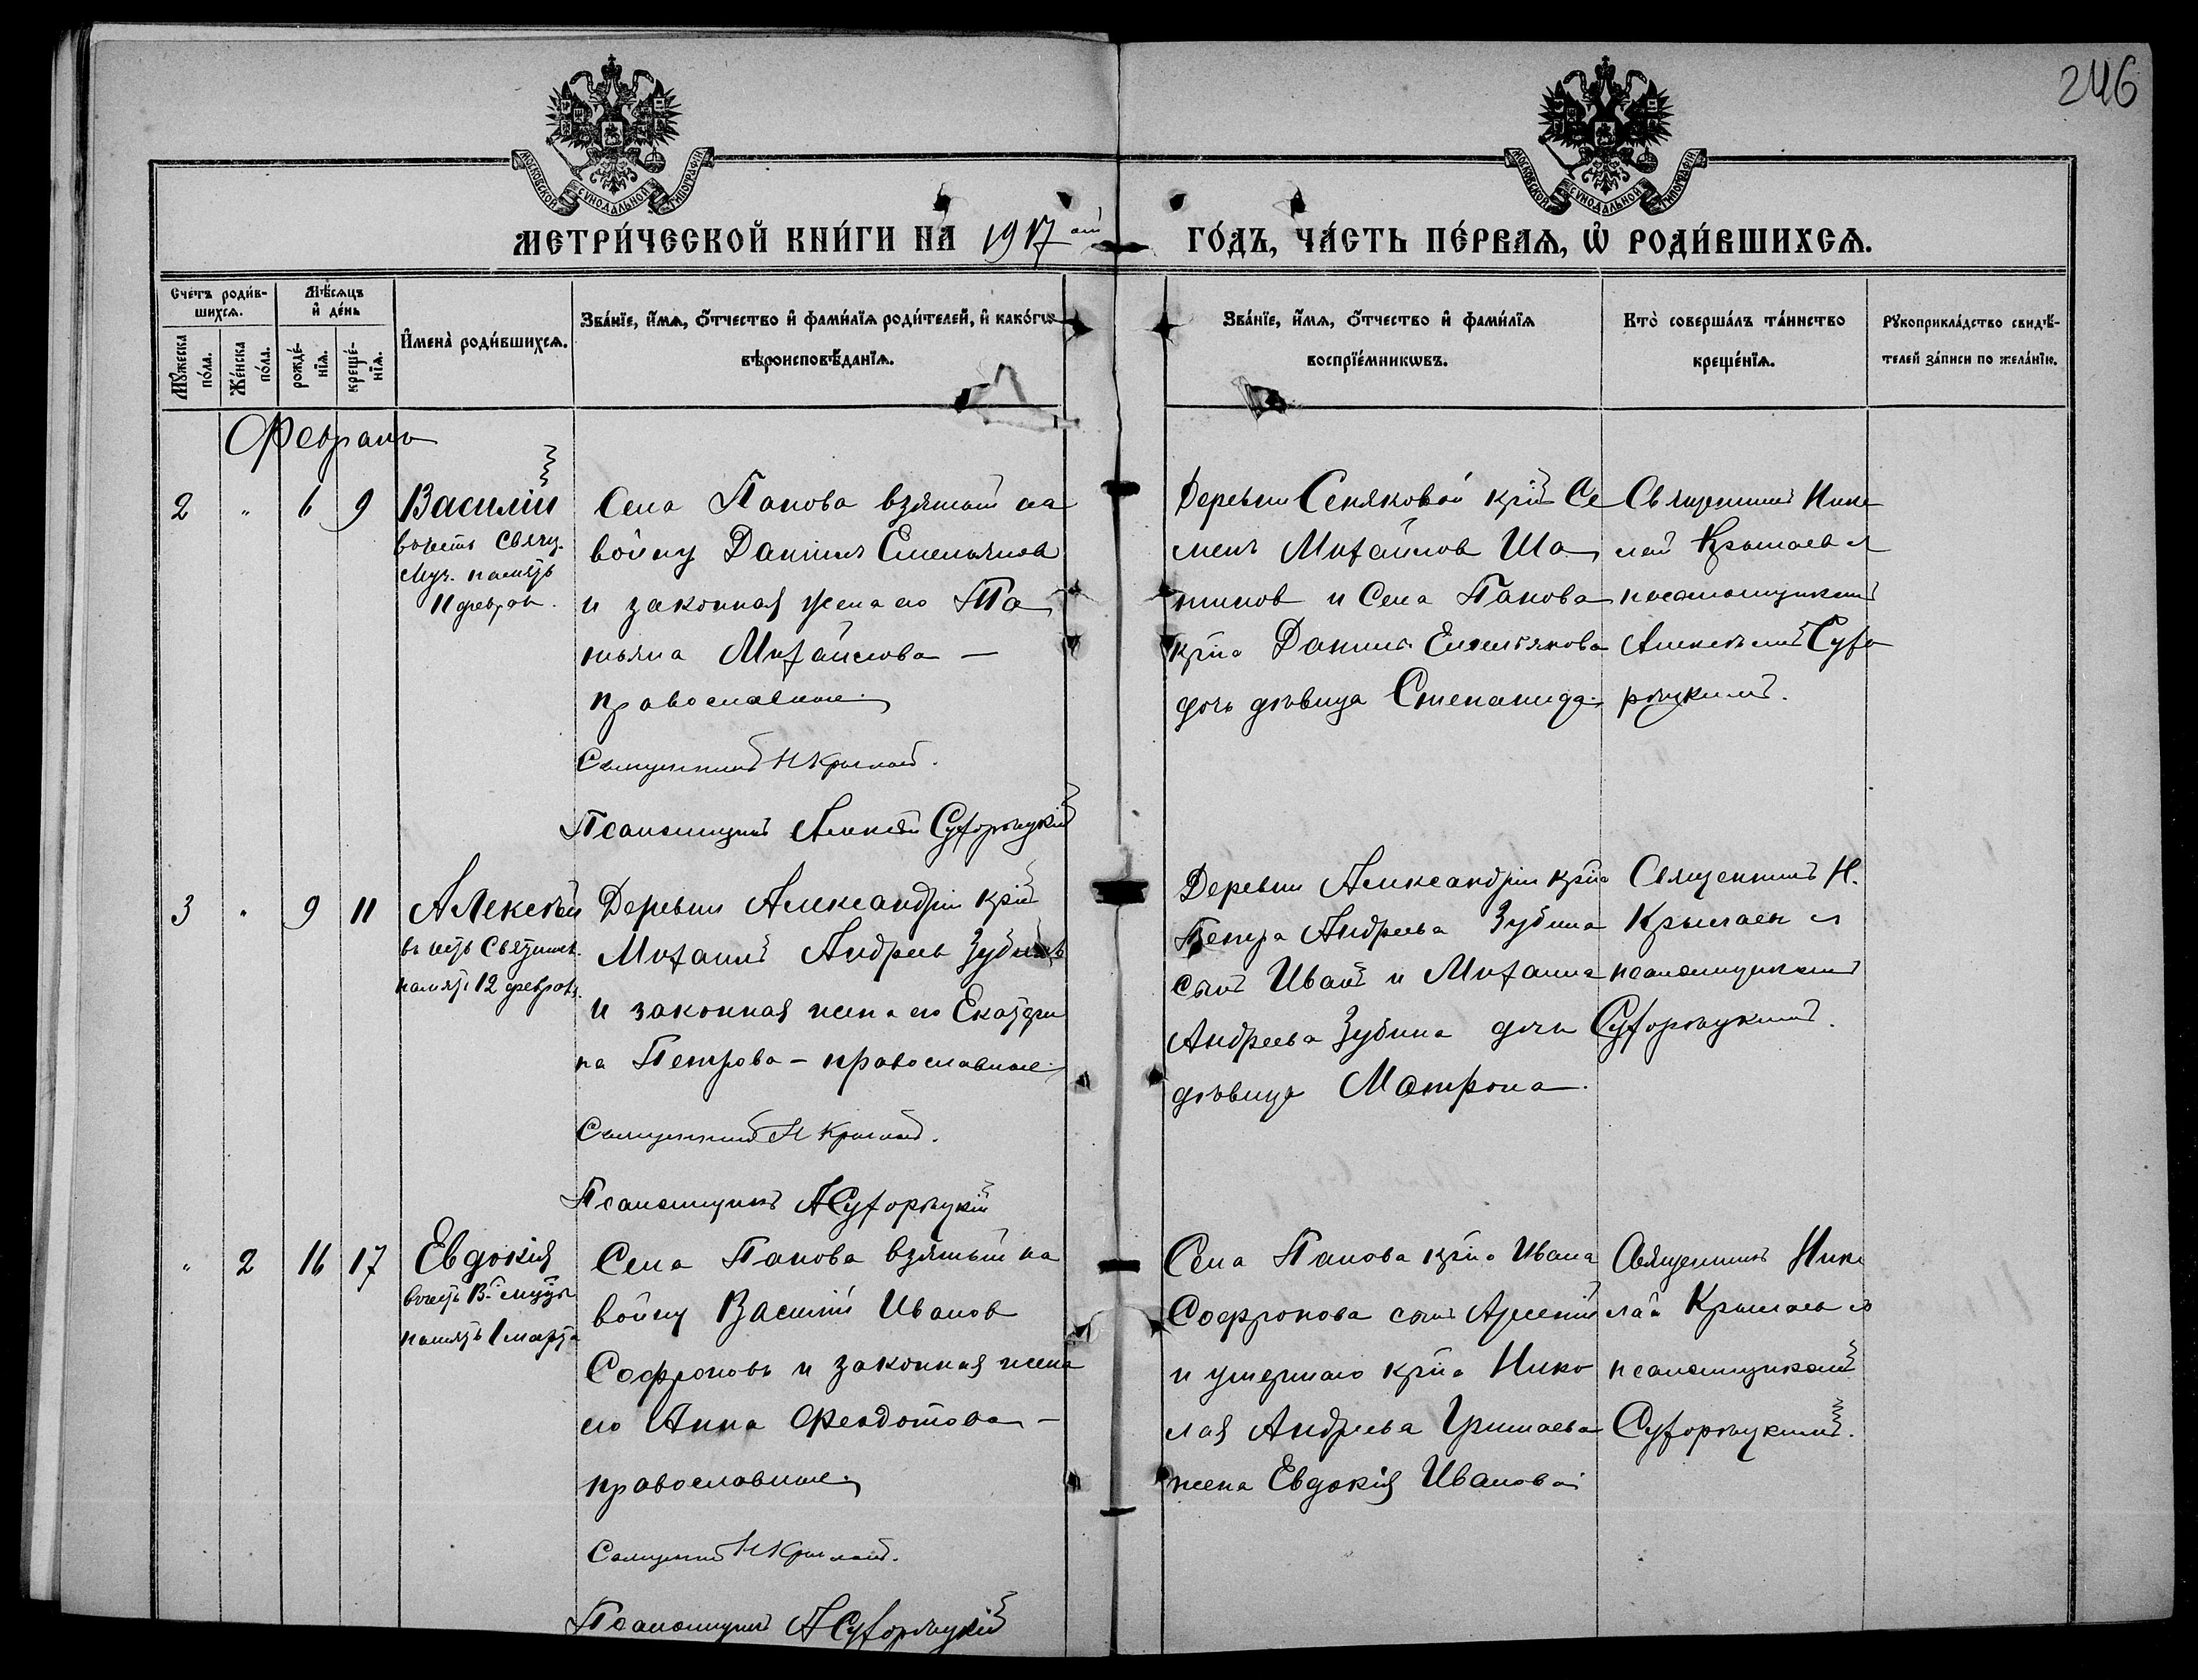 246
МОСКОВСКОЙ СУНОДАЛЬНОЙ ТИПОГРАФІИ
МОСКОВСКОЙ СУНОДАЛЬНОЙ ТИПОГРАФІИ
МЕТРИ́ЧЕСКОЙ КНИ́ГИ НА 1917 ый ГО́ДЪ, ЧА́СТЬ ПЕ́РВАѦ, Ѡ РОДИ́ВШИХСѦ.
Счетъ роди́в-
шихсѧ.
Мѣ́сѧцъ
и́ де́нь
Мꙋ́жеска
по́ла.
Же́нска
по́ла.
рожде́-
нїѧ.
креще́-
нїѧ.
И҆мена̀ роди́вшихсѧ.
Зва́нїе, и҆́мѧ, ѻ҆́тчество и҆ фами́лїѧ роди́телей, и҆ како́гѡ
вѣроисповѣ́данїѧ.
Зва́нїе, и҆́мѧ, ѻ҆́тчество и҆ фами́лїѧ
воспрїе́мникѡвъ.
Кто̀ соверша́лъ та́инство
креще́нїѧ.
Рꙋкоприкла́дство свидѣ́-
телей за́писи по жела́нїю.
Февраль
2 " 6 9 Василій
въ честь Свящ.
муч. память
11 феврал.
Села Панова взятый на
войну Даніилъ Емельянов
и законная жена его Та
тьяна Михайлова —
православные
Священникъ Н Крылов.
Псаломщикъ Алексѣй Сухорѣцкій
Деревни Сеняковой кр͠нъ Се
менъ Михайлов Ша
тинов и Села Панова
кр͠на Даніила Емельянова
дочь дѣвица Степанида
Священникъ Нико
лай Крылов с
псаломщикомъ
Алексѣемъ Сухо
рѣцкимъ.
3 " 9 11 Алексѣй
въ честь Святит.
память 12 феврал.
Деревни Александріи кр͠нъ
Михаилъ Андреев Зубинъ
и законная жена его Екатери
на Петрова — православные
Священникъ Н Крылов.
Псаломщикъ А Сухорѣцкій
Деревни Александріи кр͠на
Петра Андреева Зубина
сынъ Иванъ и Михаила
Андреева Зубина дочь
дѣвица Матрона.
Священникъ Н.
Крылов с
псаломщикомъ
Сухорѣцкимъ.
" 2 16 17 Евдокія
въ честь муч.
память 1 марта
Села Панова взятый на
войну Василій Иванов
Софроновъ и законная жена
его Анна Феодотова —
православные
Священникъ Н Крылов.
Псаломщикъ А Сухорѣцкій
Села Панова кр͠на Ивана
Софронова сынъ Арсеній
и умершаго кр͠на Нико
лая Андреева Гришаева
жена Евдокія Иванова
Священникъ Нико
лай Крылов с
псаломщикомъ
Сухорѣцкимъ.